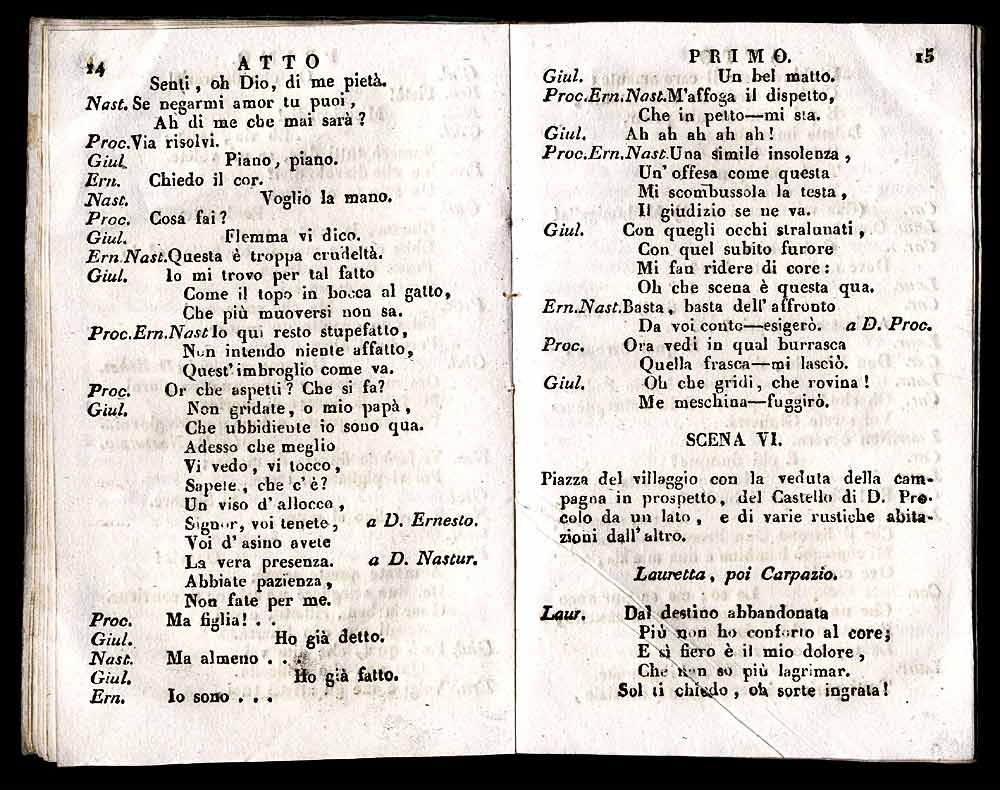 14 ATTO
Senti, oh Dio, di me pietà.
Nast. Se negarmi amor tu puoi,
Ah di me che mai sarà?
Proc. Via risolvi.
Giul. Piano, piano.
Ern. Chiedo il cor.
Nast. Voglio la mano.
Proc. Cosa fai?
Giul. Flemma vi dico.
Ern. Nast. Questa è troppa crudeltà.
Giul. Io mi trovo per tal fatto
Come il topo in bocca al gatto,
Che più muoversi non sa.
Proc. Ern. Nast Io qui resto stupefatto,
Non intendo niente affatto,
Quest' imbroglio come va.
Proc. Or che aspetti? Che si fa?
Giul. Non gridate, o mio papà,
Che ubbidiente io sono qua.
Adesso che meglio
Vi vedo, vi tocco,
Sapete, che c'è?
Un viso d'allocco,
Signor, voi tenete, a D. Ernesto.
Voi d'asino avete
La vera presenza. a D. Nastur.
Abbiate pazienza,
Non fate per me.
Proc. Ma figlia! . .
Giul. Ho già detto.
Nast. Ma almeno . . .
Giul. Ho già fatto.
Ern. Io sono . . .
PRIMO. 15
Giul. Un bel matto.
Proc. Ern. Nast. M'affoga il dispetto,
Che in petto—mi sta.
Giul. Ah ah ah ah ah!
Proc. Ern. Nast. Una simile insolenza,
Un' offesa come questa
Mi scombussola la testa,
Il giudizio se ne va.
Giul. Con quegli occhi stralunati,
Con quel subito furore
Mi fan ridere di core:
Oh che scena è questa qua.
Ern. Nast. Basta, basta dell' affronto
Da voi conto—esigerò. a D. Proc.
Proc. Ora vedi in qual burrasca
Quella frasca—mi lasciò.
Giul. Oh che gridi, che rovina!
Me meschina—fuggirò.
SCENA VI.
Piazza del villaggio con la veduta della cam-
pagna in prospetto, del Castello di D. Pro-
colo da un lato, e di varie rustiche abita-
zioni dall' altro.
Lauretta, poi Carpazio.
Laur. Dal destino abbandonata
Più non ho conforto al core;
E sì fiero è il mio dolore,
Che non so più lagrimar.
Sol ti chiedo, oh sorte ingrata!